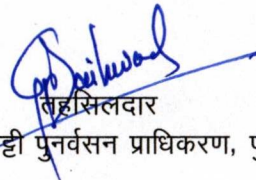 तहसिलदार
ट्टी पुनर्वसन प्राधिकरण, पु